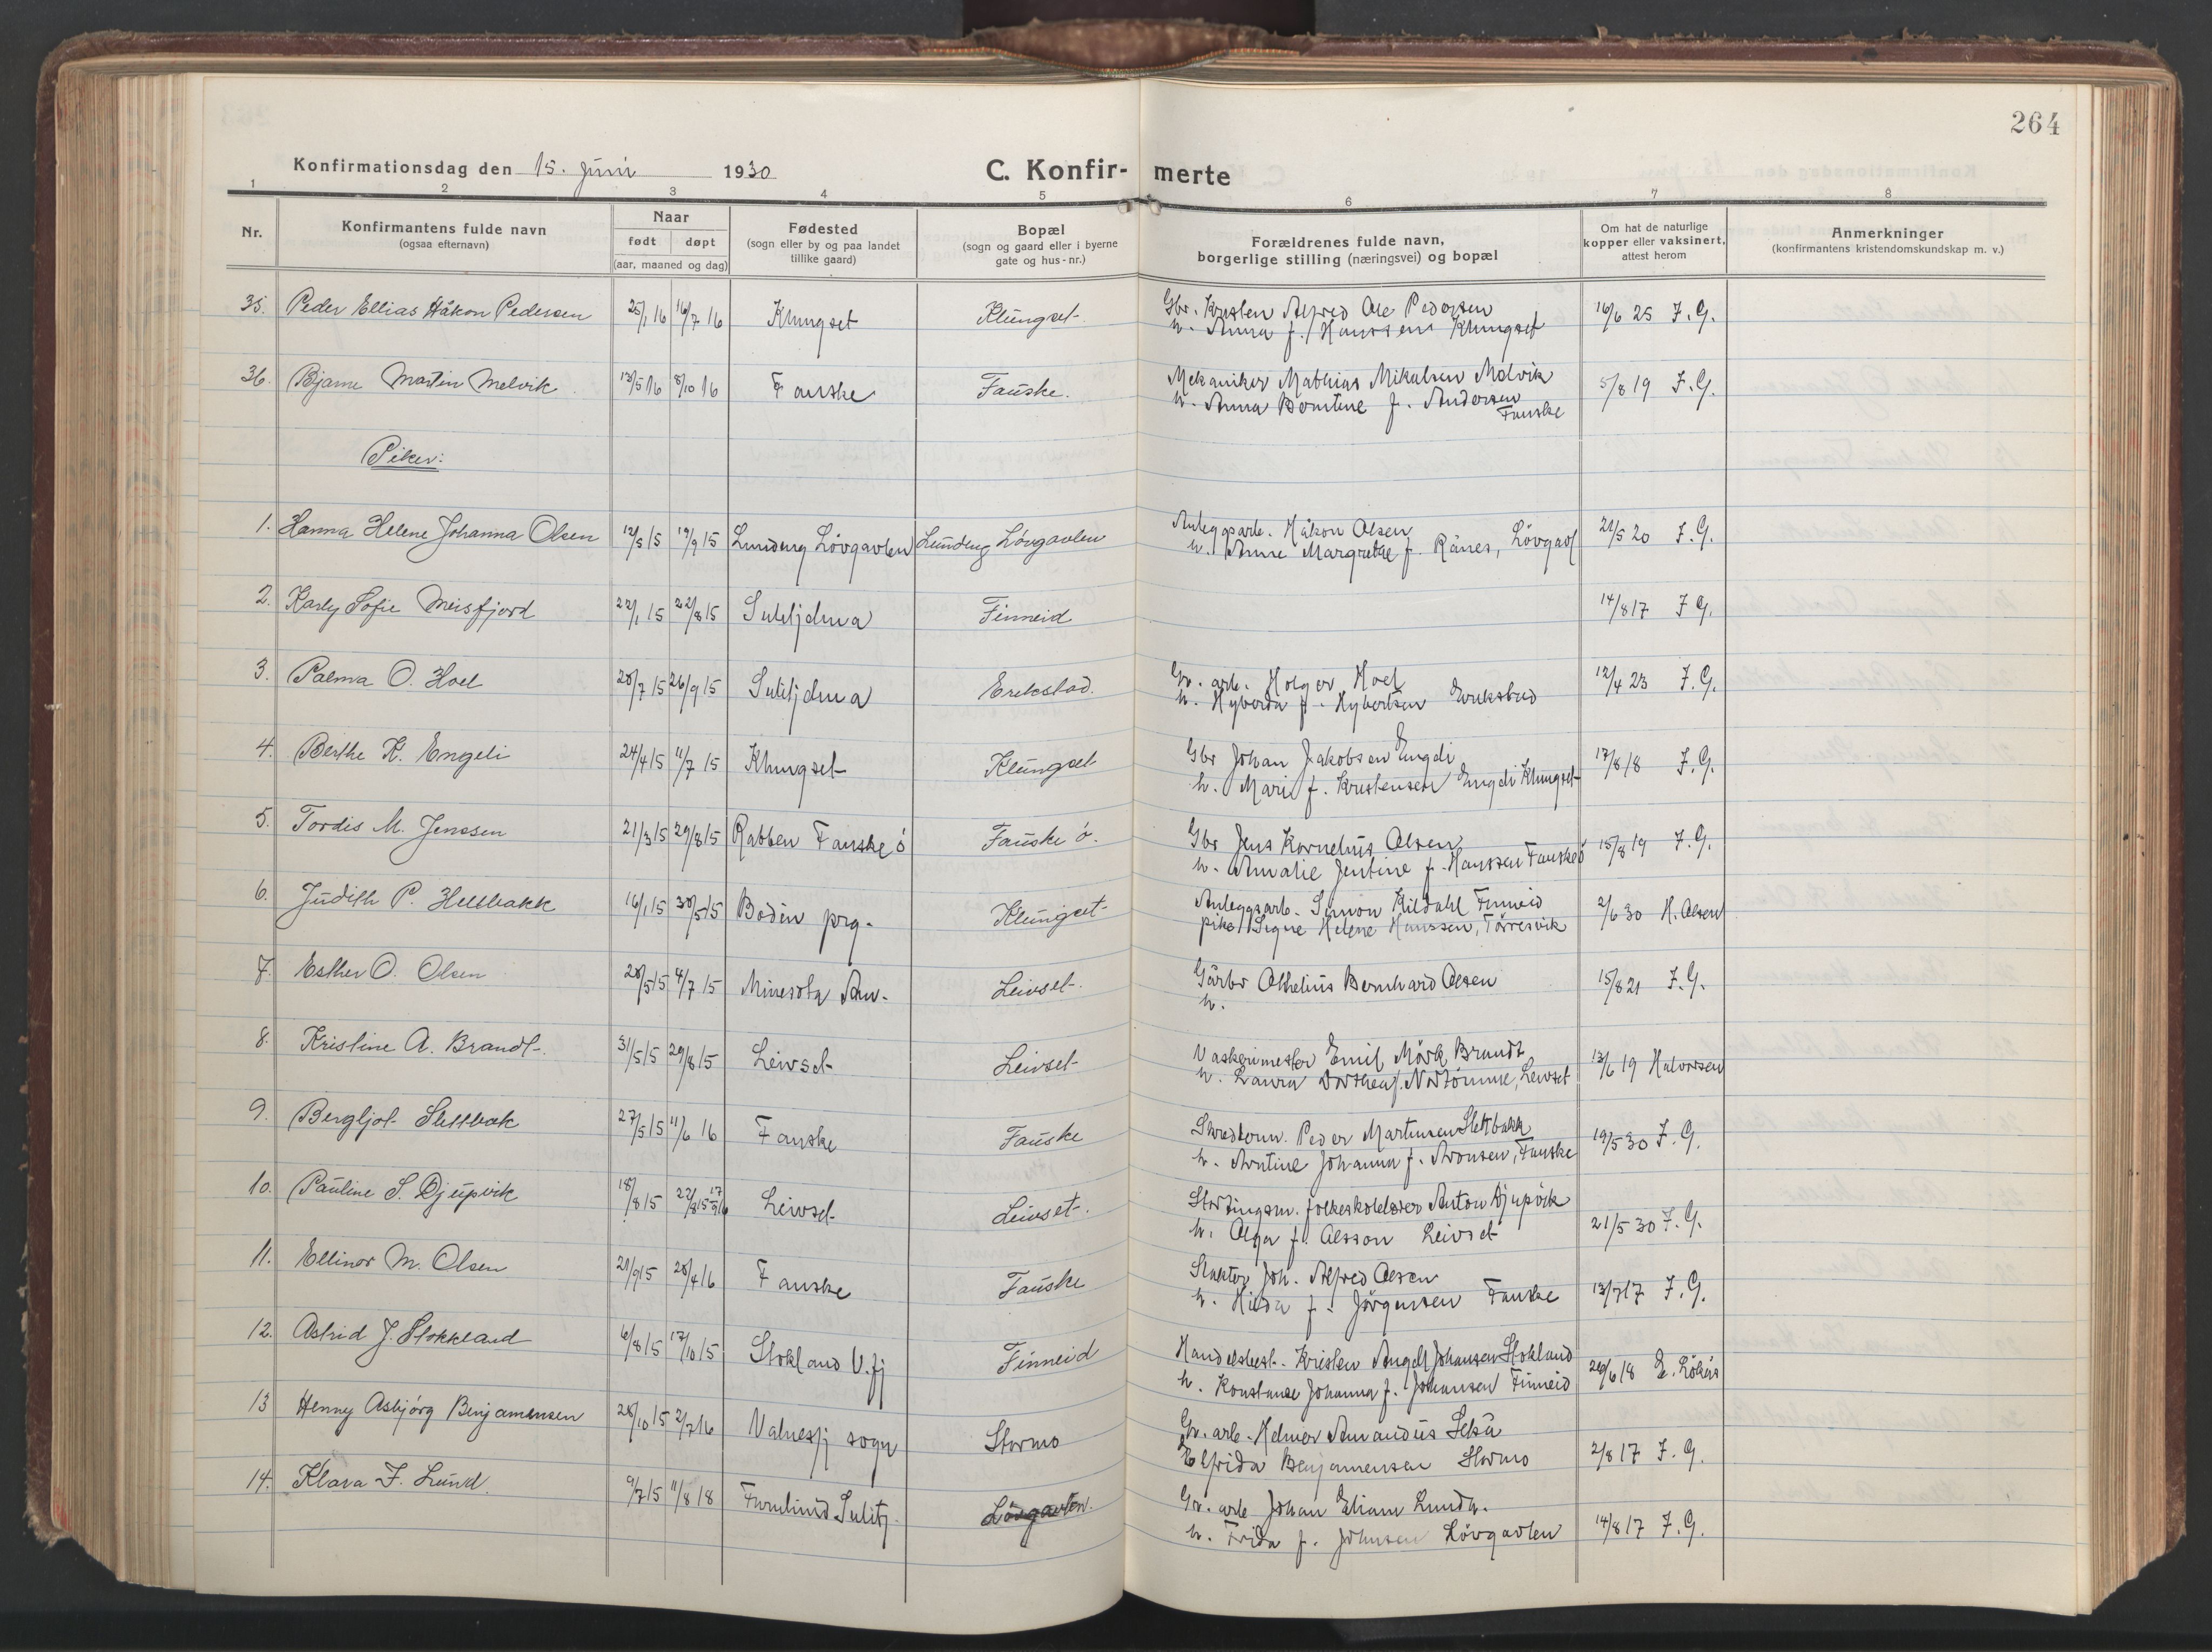 264
Konfirmationsdag den 15. Juni 1930
C. Konfir- merte
1 2 3 4 5 6 7 8
Nr.
Konfirmantens fulde navn
(ogsaa efternavn)
Naar
født døpt
(aar, maaned og dag)
Fødested
(sogn eller by og paa landet
tillike gaard)
Bopæl
(sogn og gaard eller i byerne
gate og hus-nr.)
Forældrenes fulde navn,
borgerlige stilling (næringsvei) og bopæl
Om hat de naturlige
kopper eller vaksinert,
attest herom
Anmerkninger
(konfirmantens kristendomskundskap m. v.)
35. Peder Ellias Håkon Pedersen 25/1 16 16/7 16 Klungset Klungset Gbr. Kristen Alfred Ole Pedersen 16/6 25 F.G.
h. Anna f. Hanssen Klungset
36. Bjarne Martin Melvik 13/5 16 8/10 16 Fauske Fauske. Mekaniker Mathias Mikalsen Molvik 5/8 19 F.G.
h. Anna Berntine f. Andersen
Fauske
Piker:
1. Hanna Helene Johanna Olsen 12/5 15 19/9 15 Lundeng Lövgavlen Lundeng Lövgavlen Anleggsarb. Håkon Olsen 21/5 20 F.G.
h. Anne Margrethe f. Rånes, Lövgavl
2. Karly Sofie Meisfjord 22/1 15 22/8 15 Sulitjelma Finneid 14/8 17 F.G.
3. Palma O. Hoel 28/7 15 26/9 15 Sulitjelma Erikstad. Gr. arb. Holger Hoel 12/4 23 F.G.
h. Hyberda f. Hybertsen Erikstad
4. Berthe K. Engeli 24/4 15 11/7 15 Klungset Klungset Gbr Johan Jakobsen Engeli 17/8 18 F.G.
h. Marie f. Kristensen Engeli Klungset
5. Tordis M. Jenssen 21/3 15 29/8 15 Rabben Fauske ö Fauske ö. Gbr Jens Kornelius Olsen 15/8 19 F.G.
h. Amalie Jentine f. Hanssen Fauske ö
6. Judith P. Hellbakk 16/1 15 30/5 15 Bodin prg. Klungset Anleggsarb. Simon Kildahl Finneid 2/6 30 H. Olsen
pike Signe Helene Hanssen, Törresvik
7. Esther O. Olsen 28/5 15 4/7 15 Minesota Am. Leivset. Gårbr Othelius Bernhard Olsen 15/8 21 F.G.
h.
8. Kristine A. Brandt. 31/5 15 29/8 15 Leivset Leivset Vaskerimester Emil Mörk Brandt 13/6 19 Halvorsen
h. Laura Dorthea f. Nordtömme, Leivset
9. Bergljot Slettbak 27/5 15 11/6 16 Fauske Fauske Skredderm. Peder Martinsen Slettbakk 19/5 30 F.G.
h. Arntine Johanna f. Aronsen, Fauske
10. Pauline S. Djupvik 18/8 15 22/8 15 Leivset Leivset. Stortingsm. folkeskolelærer Anton Djupvik 21/5 30 F.G.
h. Olga f. Olsson Leivset
11. Ellinor M. Olsen 21/9 15 28/4 16 Fauske Fauske Slakter Joh. Alfred Olsen 13/7 17 F.G.
h. Hilda f. Jörgensen Fauske
12. Astrid J. Stokkland 6/8 15 17/10 15 Stokland V.fj Finneid Handelsbest. Kristen Angell Johansen Stokland 20/6 18 E. Lökås
h. Konstanse Johanna f. Johansen Finneid
13 Henny Asbjörg Benjamensen 28/10 15 2/7 16 Valnesfj sogn Stormo Gr. arb. Helmer Amandus Setså 2/8 17 F.G.
Elfrida Benjamensen Stormo
14. Klara F. Lund. 9/7 15 11/8 18 Furulund Sulitj. Lövgavlen. Gr. arb Johan Eliam Lund. 14/8 17 F.G.
h. Frida f. Johnsen Lövgavlen